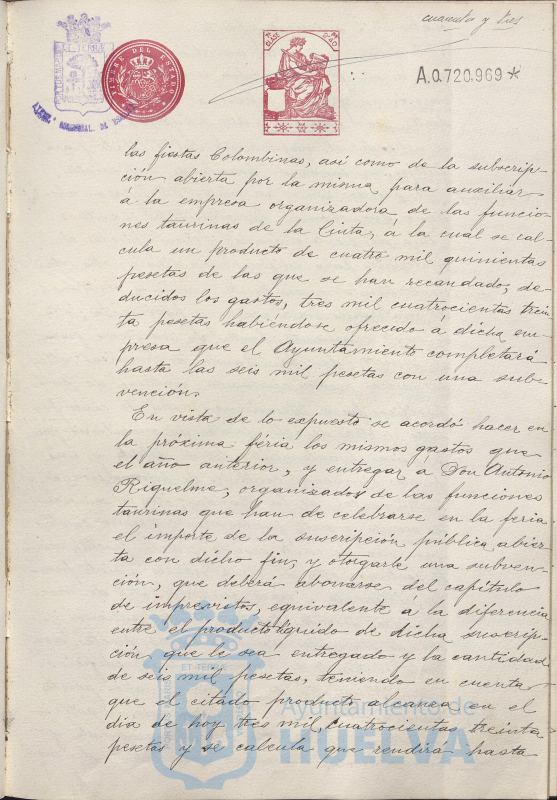 cuarenta y tres
TIMBRE DEL ESTADO
A.0.720.969*
las fiestas Colombinas, así como de la subscrip-
ción abierta por la misma para auxiliar
á la empresa organizadora de las funcio-
nes taurinas de la Cinta, a la cual se cal-
cula un producto de cuatro mil quinientas
pesetas de las que se han recaudado, de-
ducidos los gastos, tres mil cuatrocientas trein-
ta pesetas habiéndose ofrecido á dicha em-
presa que el Ayuntamiento completará
hasta las seis mil pesetas con una sub-
vención.
En vista de lo expuesto se acordó hacer en
la próxima féria los mismos gastos que
el año anterior, y entregar á Don Antonio
Riquelme, organizador de las funciones
taurinas que han de celebrarse en la feria
el importe de la suscripción pública abier-
ta con dicho fin y otorgarle una subven-
ción, que deberá abonarse del capítulo
de imprevistos, equivalente a la diferencia
entre el producto líquido de dicha suscrip-
ción que le sea entregado y la cantidad
de seis mil pesetas, teniendo en cuenta
que el citado producto alcanza en el
dia de hoy tres mil cuatrocientas treinta
pesetas y se calcula que rendirá hasta
Ayuntamiento de
HUELVA